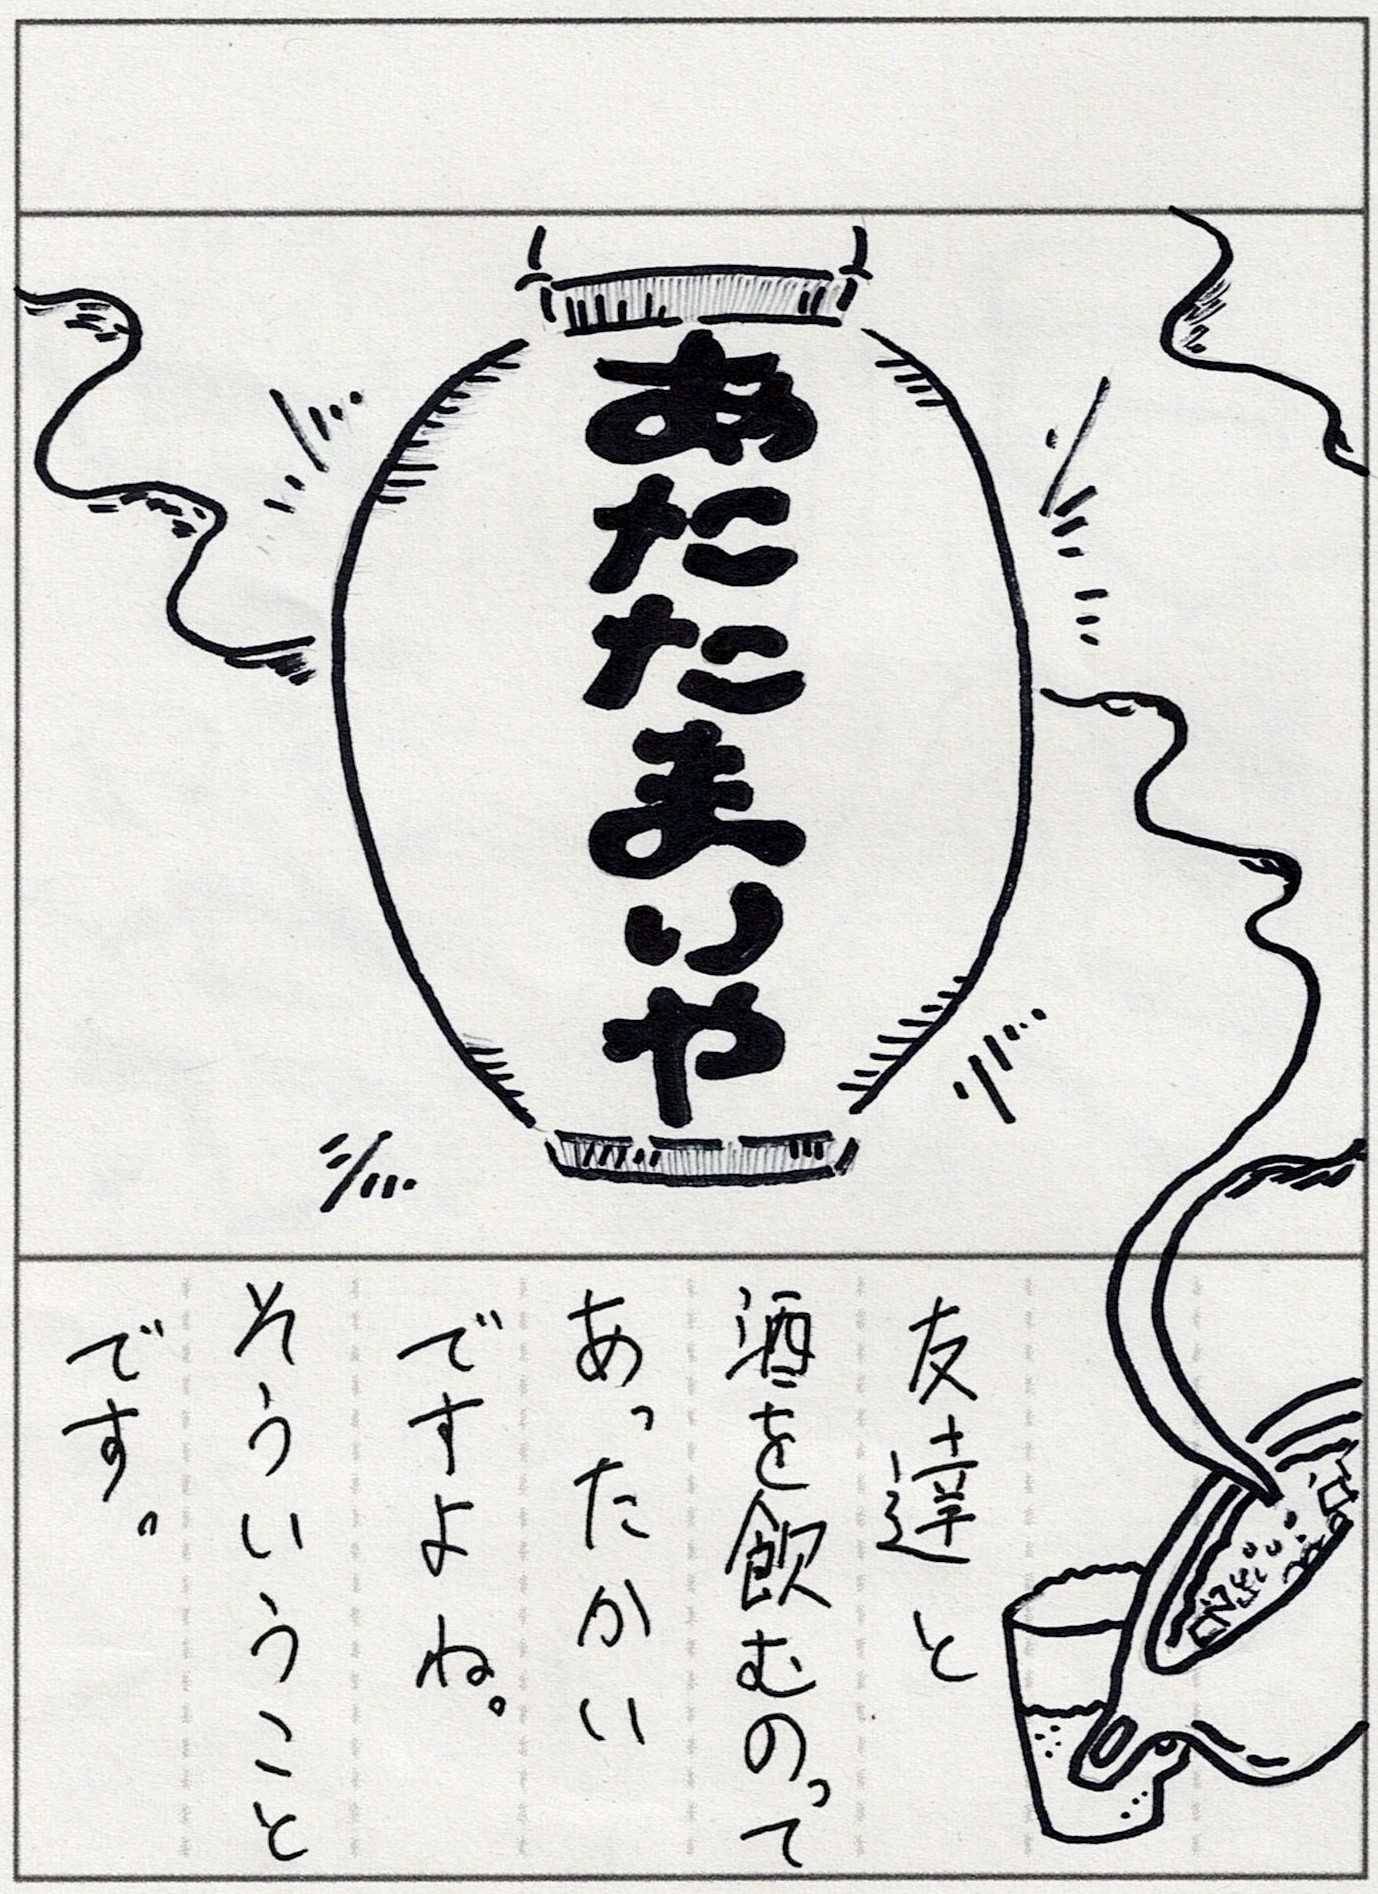 あたたまりや
友達と
酒を飲むのって
あったかい
ですよね。
そういうこと
です。